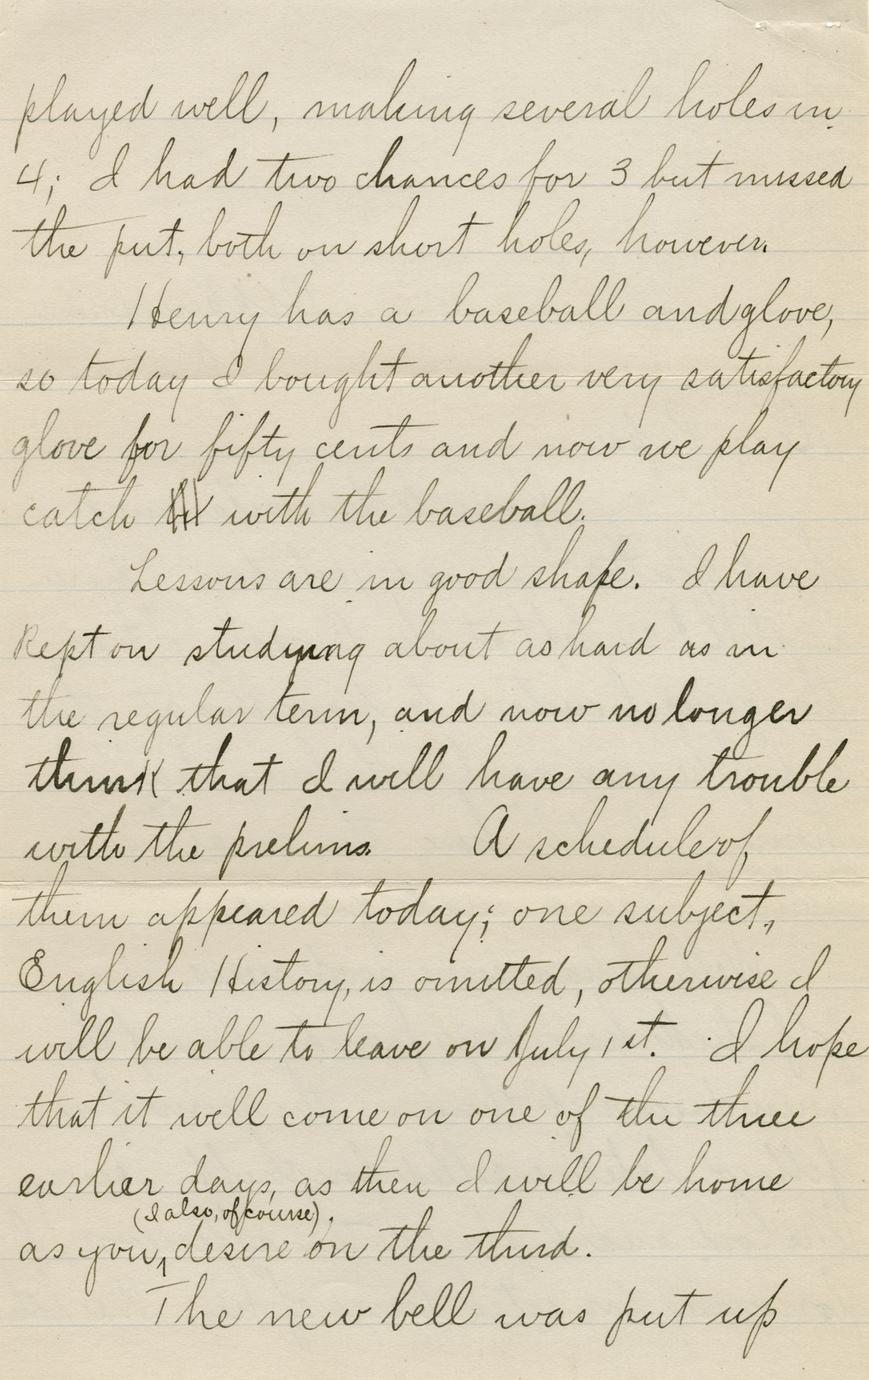 played well, making several holes in
4; I had two chances for 3 but missed
the put, both on short holes, however.
Henry has a baseball and glove,
so today I bought another very satisfactory
glove for fifty cents and now we play
catch with the baseball.
Lessons are in good shape. I have
kept on studying about as hard as in
the regular term, and now no longer
think that I will have any trouble
with the prelims. A schedule of
them appeared today; one subject,
English History, is omitted, otherwise I
will be able to leave on July 1st. I hope
that it will come on one of the three
earlier days, as then I will be home
(I also, of course),
as you, desire on the third.
The new bell was put up